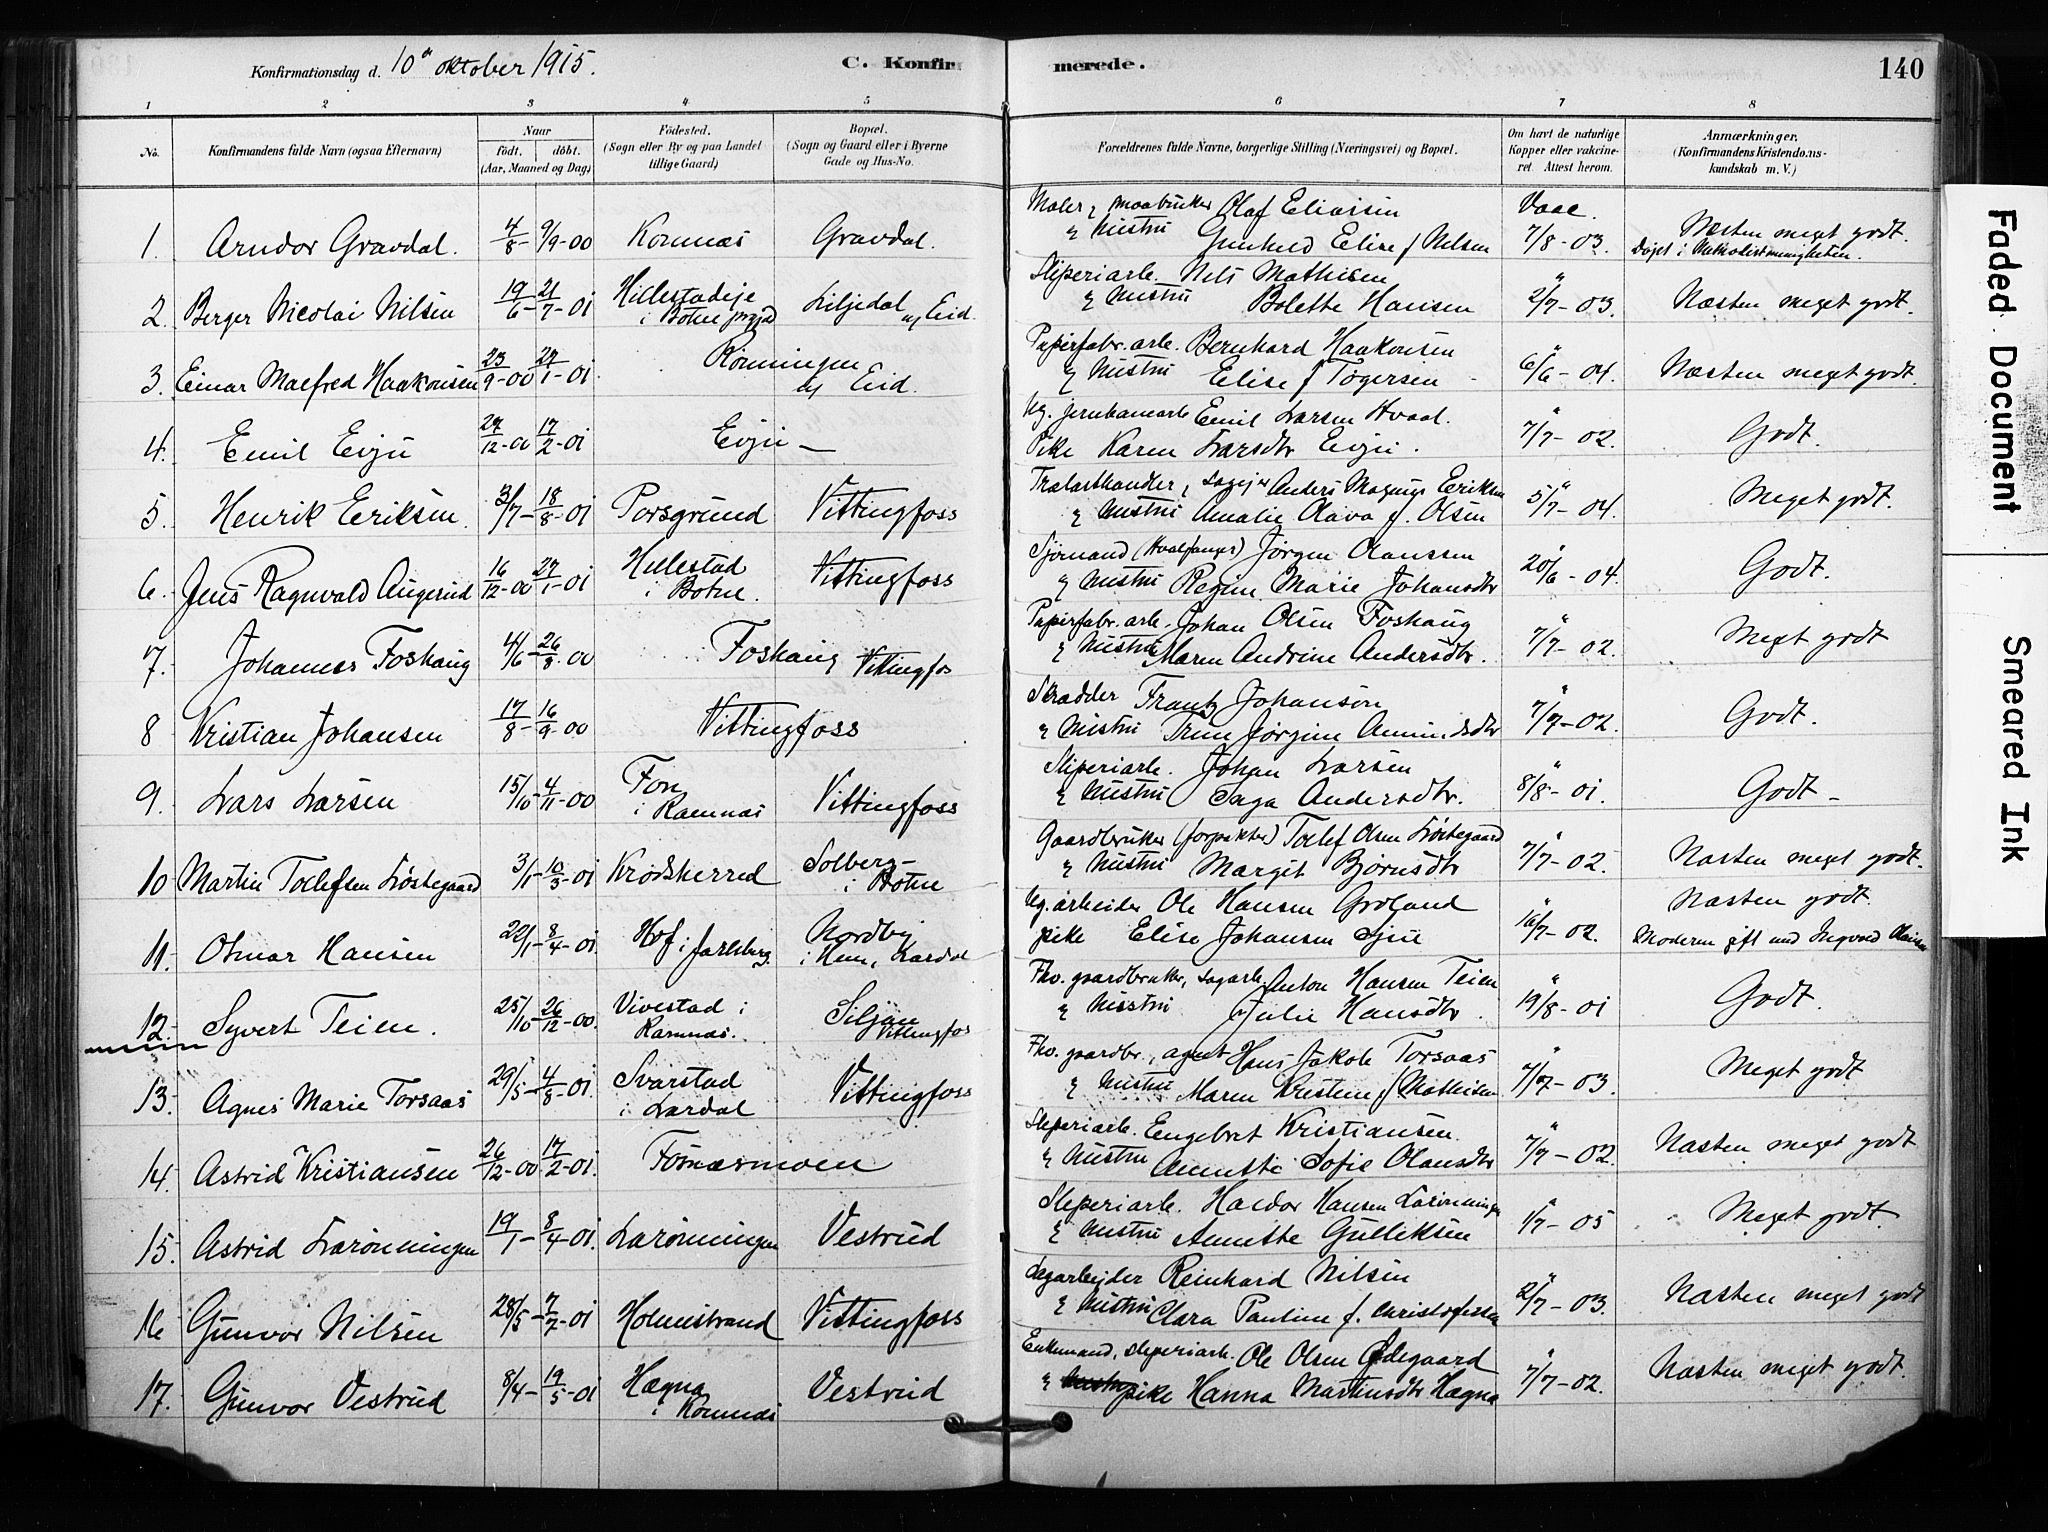 Konfirmationsdag d. 10de oktober 1915.
C. Konfirmerede.
140
1 2 3 4 5 6 7 8
No.
Konfirmandens fulde Navn (ogsaa Efternavn)
Naar
födt. döbt.
(Aar, Maaned og Dag)
Födested.
(Sogn eller By og paa Landet
tillige Gaard)
Bopæl.
(Sogn og Gaard eller i Byerne
Gade og Hus-No.
Forældrenes fulde Navne, borgerlige Stilling (Næringsvei) og Bopæl.
Om havt de naturlige
Kopper eller vakcine-
ret. Attest herom.
Anmærkninger.
(Konfirmandens Kristendoms-
kundskab m. V.)
Maler, smaabruker Olaf Eliassen Vacc.
1. Arndor Gravdal. 4/8- 9/9-00 Komnæs Gravdal. & hustru Gunhild Elise f. Nilsen 7/8-03. Næsten meget godt.
Døpt i Methodistmenigheten.
Sliperiarb. Nils Mathisen
2. Berger Nicolai Nilsen 19/6- 21/7-01 Hillestadeie i Botne prgjd Liljedal af Eid. & hustru Bolette Hansen 2/7-03. Næsten meget godt.
Papirfabr. arb. Bernhard Haakonsen
3. Einar Malfred Haakonsen 23/9-00 27/1-01 Rønningen af Eid. & hustru Elise f Togersen 6/6-04. Næsten meget godt.
Ug. jernbanearb Emil Larsen Hvaal
4. Emil Evju 27/12-00 17/2-01 Evju — Pike Karen Larsdtr Evju. 7/7-02. Godt.
Trælasthandler, Anders Magnus Eriksen
5. Henrik Eriksen. 3/7- 18/8-01 Porsgrund Vittingfoss & hustru Amalie Olava f. Olsen 5/7-04. Meget godt.
Sjømand (Hvalfanger) Jørgen Olaussen
6. Jens Ragnvald Augerud 16/12-00 27/1-01 Hillestad i Botne. Vittingfoss & hustru Regine Marie Johansdtr 20/6-04. Godt.
Papirfabr. arb. Johan Olsen Foshaug
7. Johannes Foshaug 4/6- 26/8-00 Foshaug Vittingfos & hustru Maren Andrine Andersdtr. 7/7-02. Meget godt
Skrædder Frantz Johanson
8 Kristian Johansen 17/8- 16/9-00 Vittingfoss & hustru Trine Jørgine Amundsdtr 7/7-02. Godt.
Sliperiarb. Johan Larsen
9. Lars Larsen 15/10- 4/11-00 Fon i Ramnæs Vittingfoss & hustru Inga Andersdtr. 8/8-01. Godt—
Gaardbruker (forpakter) Tollef Olsen Løstegaard
10 Martin Tollefsen Løstegaard 3/1- 10/3-01 Krødsherred Solberg i Botne & hustru Margit Bjørnsdtr 7/7-02. Næsten meget godt.
Ug. arbeider Ole Hansen Grøland Næsten godt.
11. Otmar Hansen 22/1- 8/4-01 Hof i Jarlsberg. Nordby i Hem, Lardal pike Elise Johansen Sjue 16/7-02. Moderen gift med Ingvald
Fhv. gaardbruker, sagarb. Anton Hansen Teien
12. Syvert Teien. 25/10- 26/12-00. Vivestad i Ramnæs. Siljan Vittingfos & hustru Julie Hansdtr. 19/8-01 Godt.
Fhv. gaardbr., agent Hans Jakob Torsaas
13. Agnes Marie Torsaas 29/5- 4/8-01 Svarstad i Lardal Vittingfoss & hustru Maren Kristine f Mathisen 7/7-03. Meget godt.
Sliperiarb. Engebret Kristiansen.
14. Astrid Kristiansen 26/12-00 17/2-01. Fornæsmoen & hustru Annette Sofie Olausdtr 7/7-02. Næsten meget godt
Sliperiarb. Haldor Hansen Larønningen
15. Astrid Larønningen 19/1- 8/4-01. Larønningen Vestrud & hustru Annette Gulliksen 1/7-05 Meget godt.
Sagarbejder Reinhard Nilsen
16 Gunvor Nilsen 28/5- 7/7-01 Holmestrand Vittingfoss & hustru Clara Pauline f. Christofersen 2/7-03. Næsten meget godt
Enkemand, sliperiarb. Ole Olsen Ødegaard
17. Gunvor Vestrud 8/4- 19/5-01 Hægna i Komnæs Vestrud & pike Hanna Martinsdtr Hægna 7/7-02. Næsten meget godt.
Faded Document
Smeared Ink